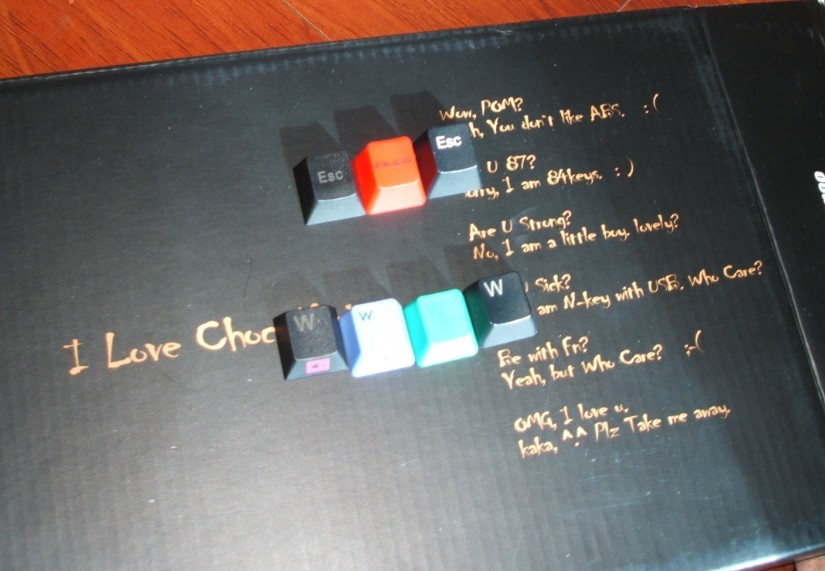 Wow, POM?
h, You don't like ABS. :(
U 87?
rry, I am 84keys. :)
Are U Strong?
No, I am a little boy, lovely?
Sick?
am N-key with USB. Who Care?
Be with Fn?
Yeah, but Who Care? ;-(
OMG, I love u.
kaka, ^.^ Plz Take me away.
I Love Choc
Esc
FILCO
Esc
W
W
W